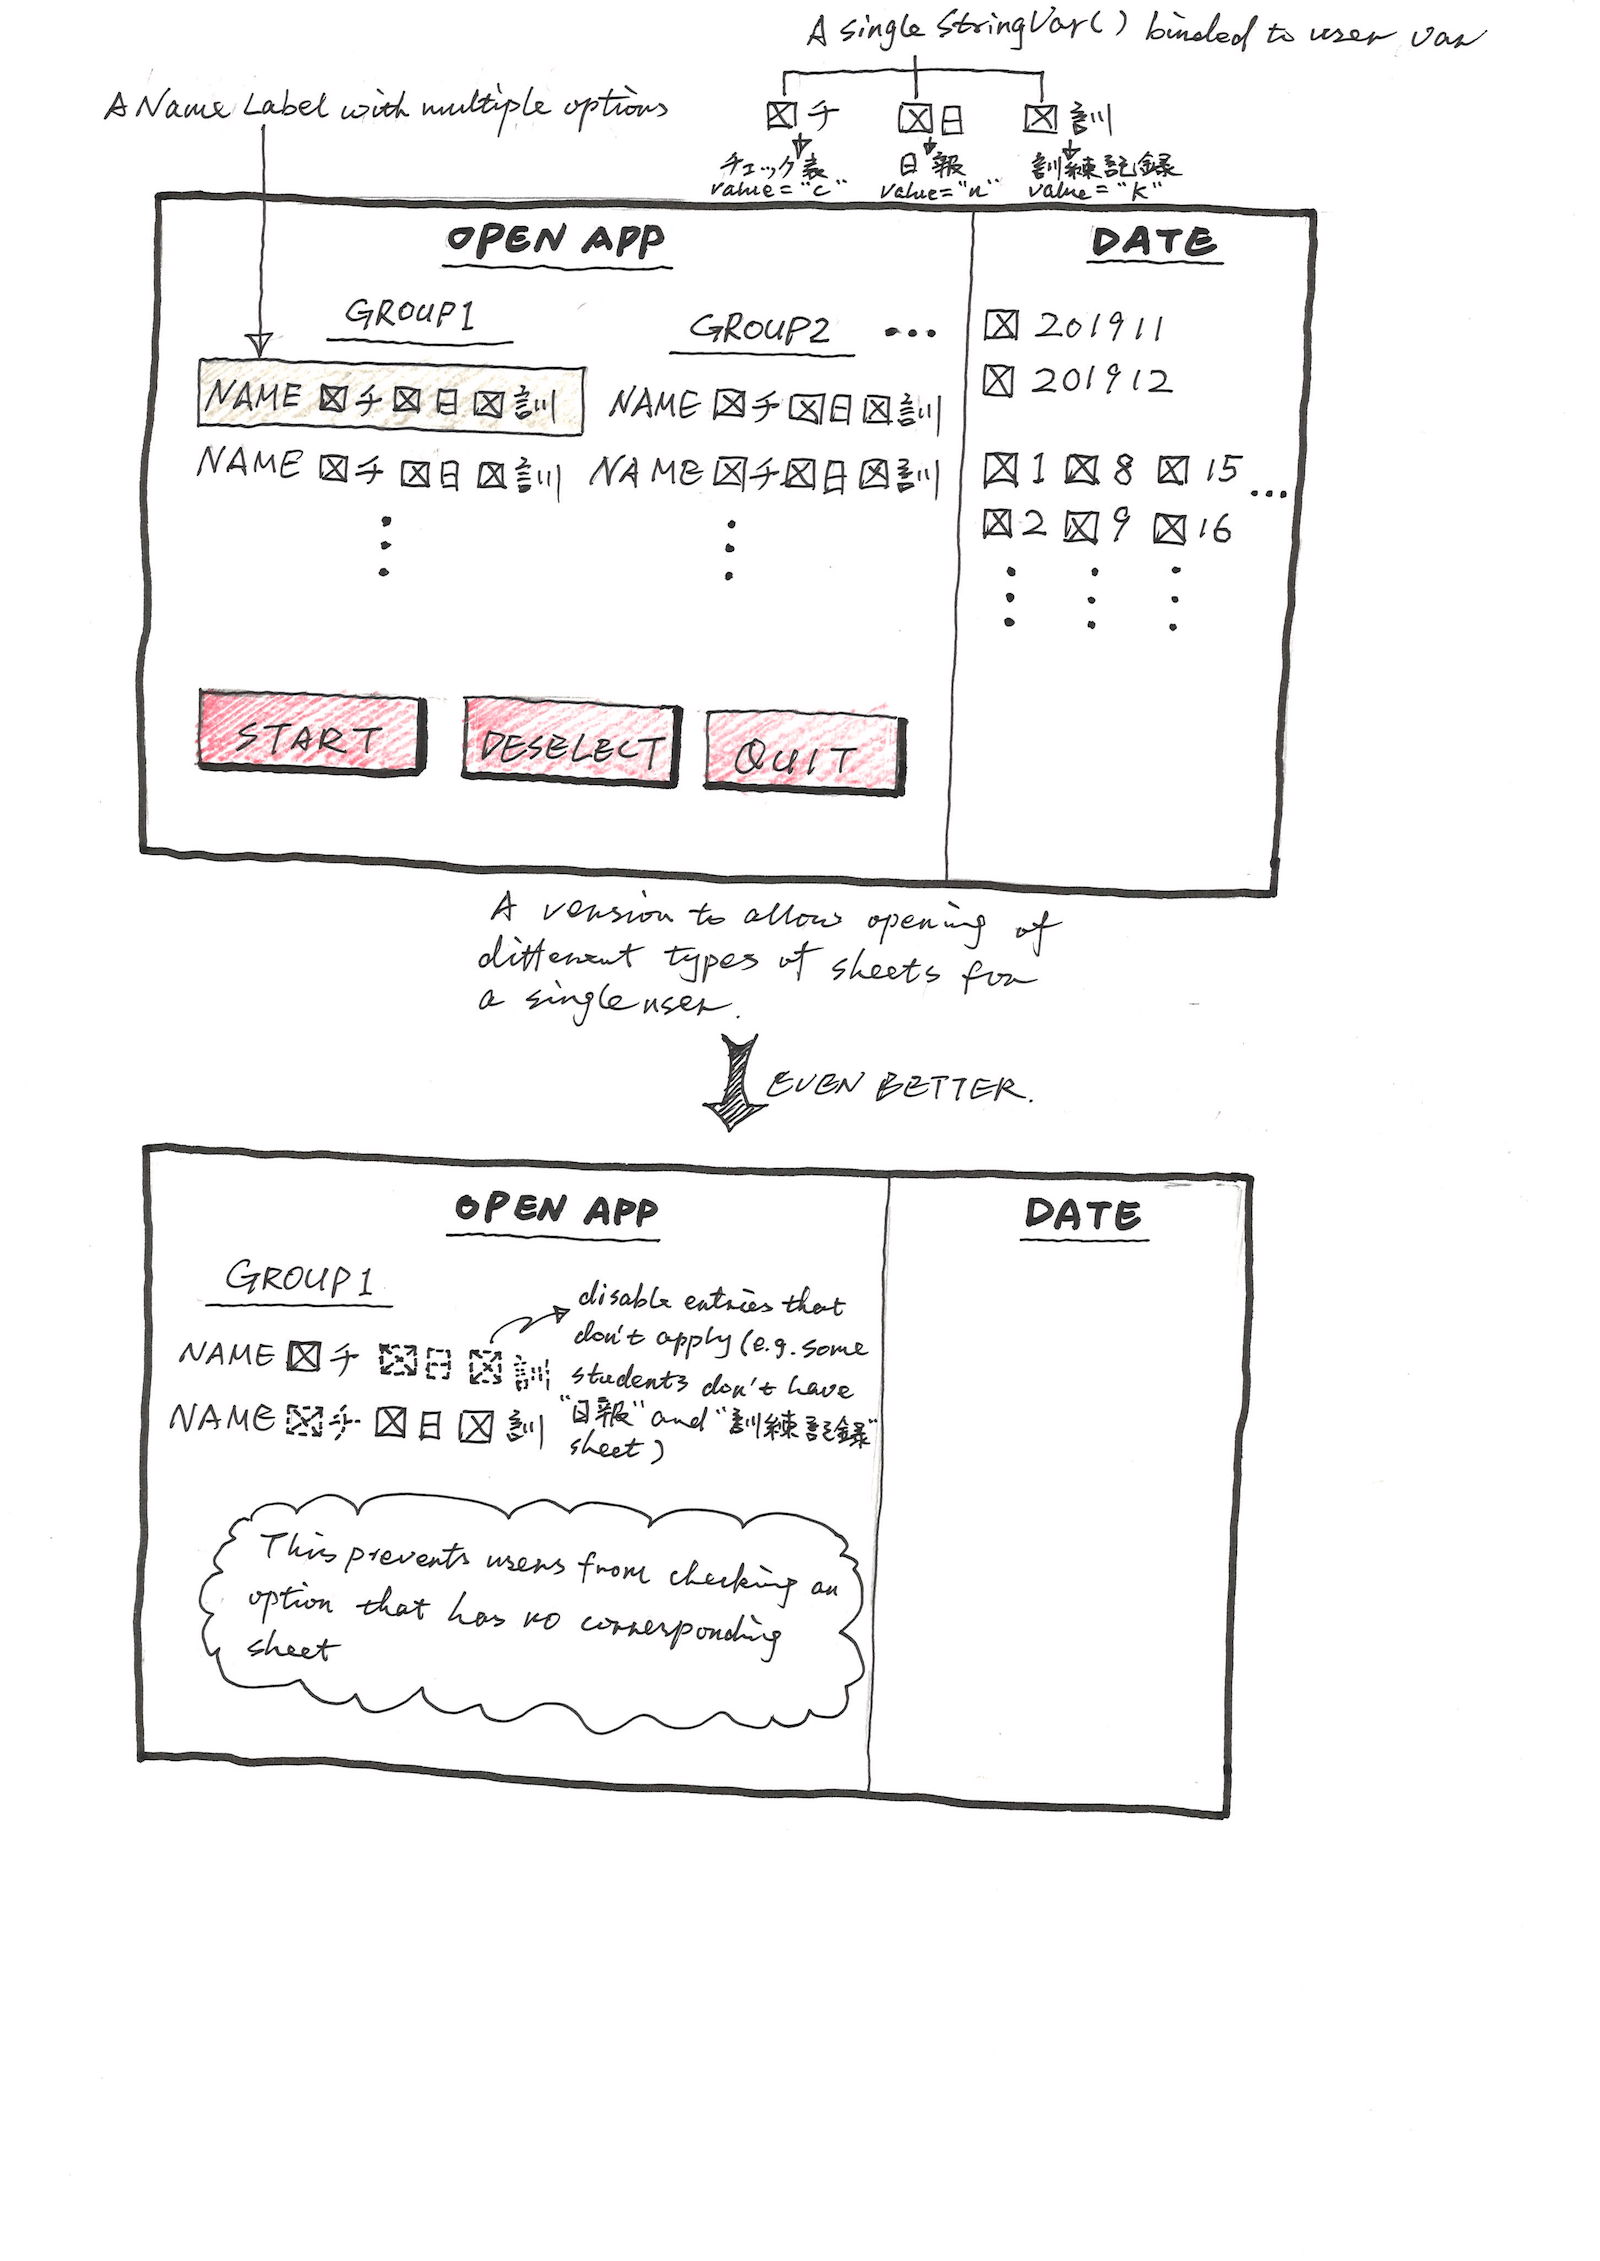 A single StringVar() binded to user var
A Name Label with multiple options
チ 日 訓
チェック表 日報 訓練記録
value="c" value="n" value="k"
OPEN APP
DATE
GROUP1
GROUP2 ...
201911
201912
NAME チ 日 訓
NAME チ 日 訓
NAME チ 日 訓
NAME チ 日 訓
1 8 15 ...
2 9 16
START
DESELECT
QUIT
A version to allow opening of
different types of sheets for
a single user.
EVEN BETTER.
OPEN APP
DATE
GROUP1
NAME チ 日 訓
NAME チ 日 訓
disable entries that
don't apply (e.g. some
students don't have
"日報" and "訓練記録"
sheet)
This prevents users from checking an
option that has no corresponding
sheet